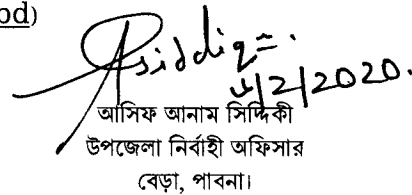 od)
Asiddiq
4/2/2020.
আসিফ আনাম সিদ্দিকী
উপজেলা নির্বাহী অফিসার
বেড়া, পাবনা।